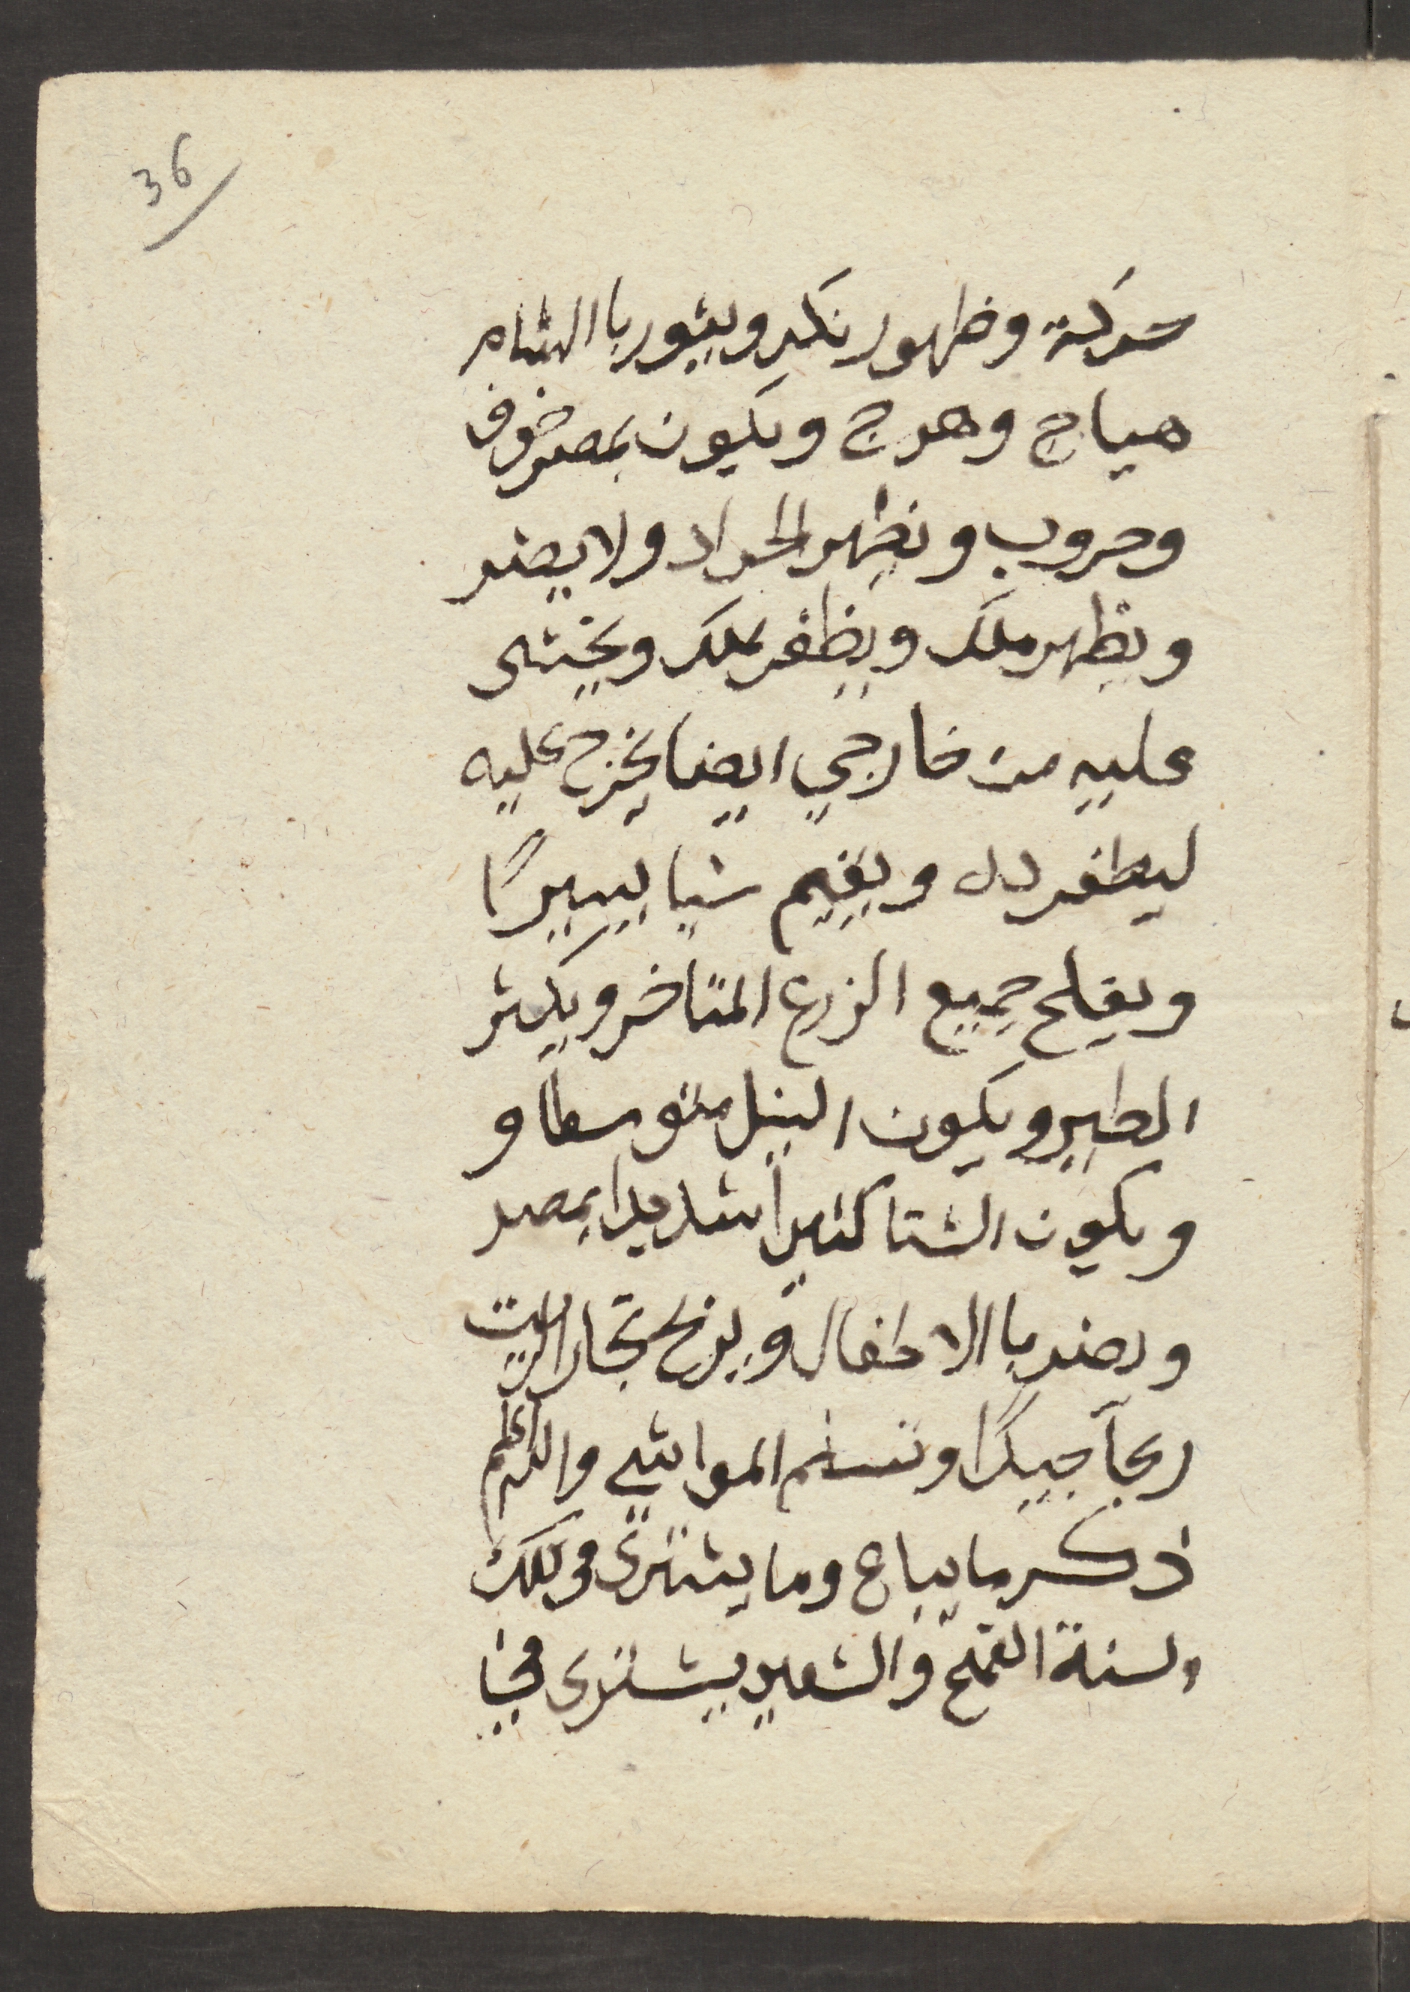 36
حركة وظهور نكد ويثور باالشام
هياج وهرج ويكون بمصر خوف
وحروب ويظهر الجراد ولا يضر
ويظهر ملك ويظفر بملك ويخشى
عليه من خارجي ايضا يخرج عليه
ليظفر به ويقيم شيا يسيرًا
ويفلح جميع الزرع المتاخر ويكثر
الطير ويكون النيل متوسطا و
ويكون الشتا كثيرا شديدا بمصر
ويضر باالاطفال ويربح تجار الزيت
ربحا جيدا وتسلم المواشي والله اعلم
ذكر ما يباع وما يشترى في تلك
السنة القمح والشعير يشترى في